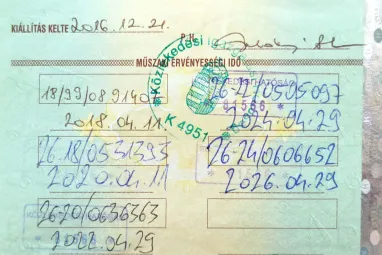 KIÁLLÍTÁS KELTE 2016.12.21.
P. H.
MŰSZAKI ÉRVÉNYESSÉGI IDŐ
Közlekedési
K 4951
18/99/089140
2018.04.11
26-18/0531393
2020.04.11
26-20/0636363
2022.04.29
26-22/0505097
81566
2024.04.29
26-24/0606652
2026.04.29